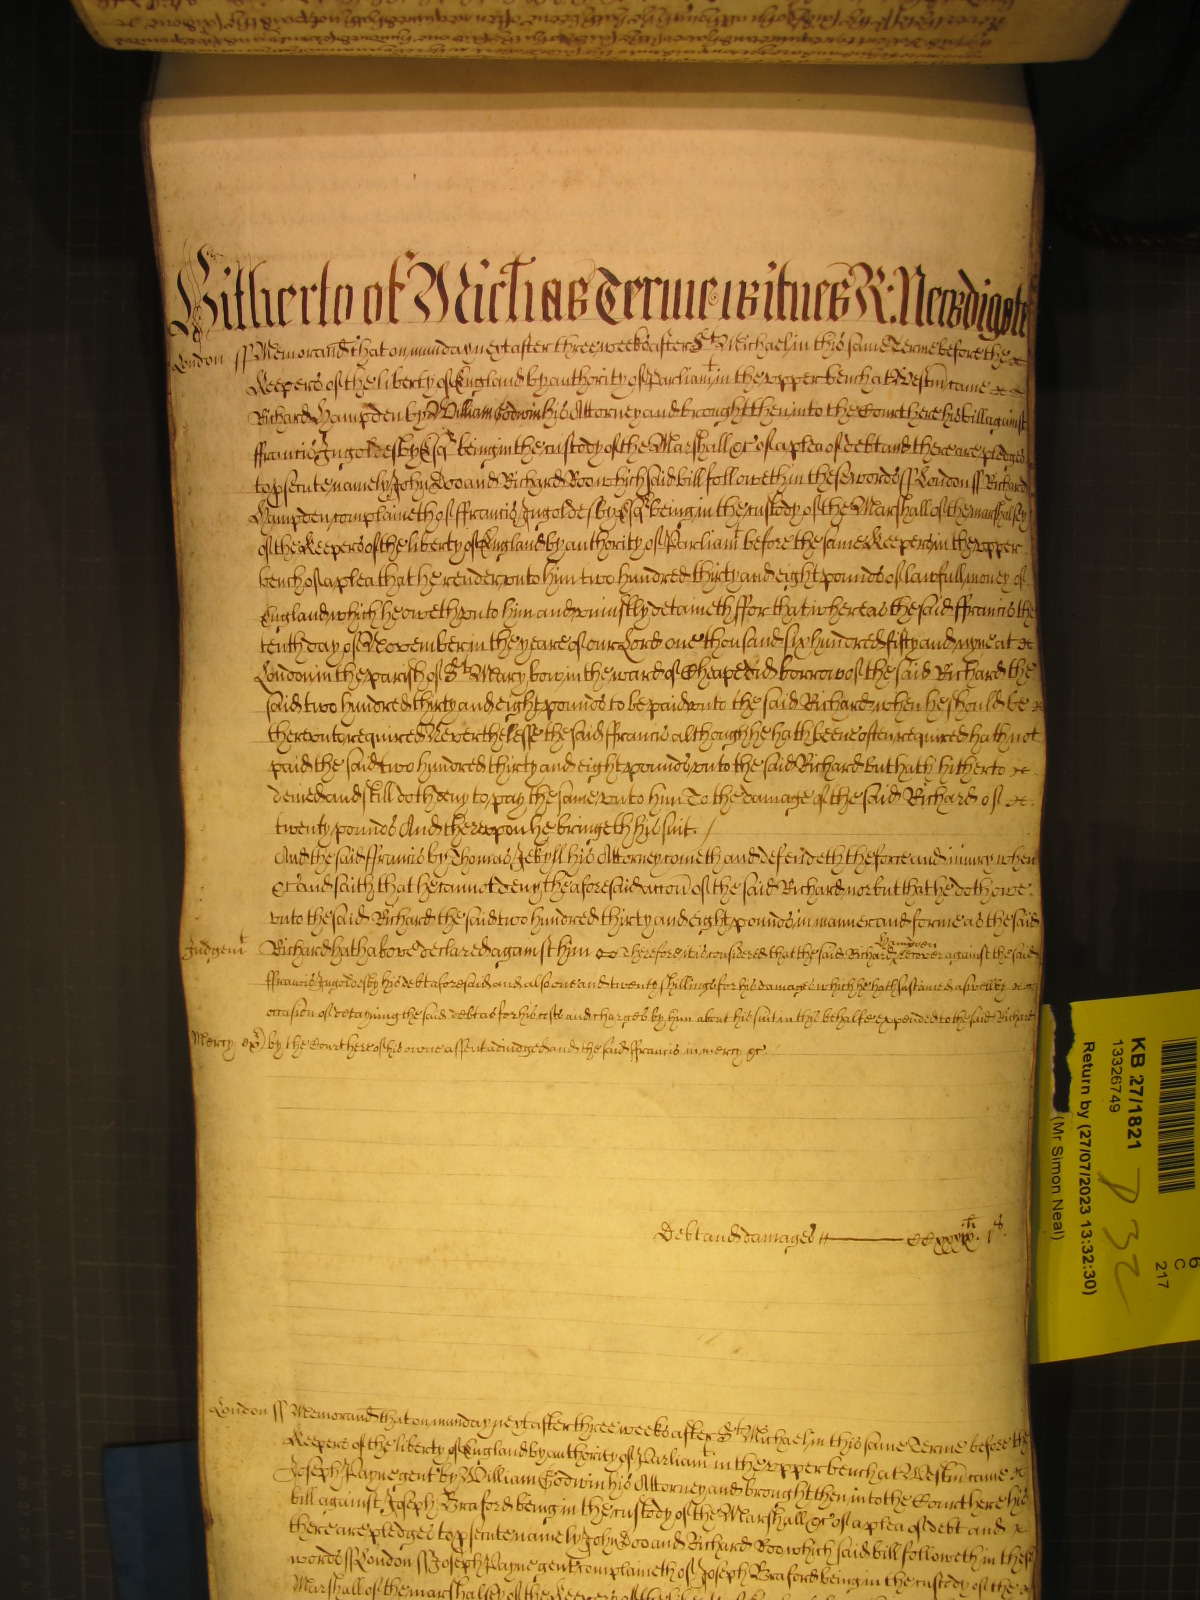 Hitherto of Michas Terme witnes R: Newdigate
London ss Memorand that on munday next after three weeks after St Michael in this same Terme before the &c
Keepers of the liberty of England by authority of Parliamt in the upper bench at Westm came &c &c
Richard Hampden by William Godwin his Attorney and brought then into the Court here his bill against
ffrancis Ingoldesby Esqr being in the custody of the Marshall &c of a plea of debt and there are pledges
to psecute namely John Doo and Richard Roo which said bill followeth in these words ss London ss Richard
Hampden complaineth of ffrancis Ingoldesby Esqr being in the custody of the Marshall of the marshalsey
of the Keepers of the liberty of England by authority of Parliamt before the same Keepers in the upper
bench of a plea that he render unto him two hundred thirty and eight pounds of lawfull money of
England which he oweth unto him and uniustly detaineth ffor that whereas the said ffrancis the
tenth day of November in the yeare of our Lord one thousand six hundred fifty and nyne at &c
London in the parish of St Mary bow in the ward of Cheape did borrow of the said Richard the
said two hundred thirty and eight pounds to be paid unto the said Richard when he should be &c
thereunto required Neverthelesse the said ffrancis although he hath beene often required hath not
paid the said two hundred thirty and eight pounds unto the said Richard but hath hitherto &c
denied and still doth deny to pay the same unto him To the damage of the said Richard of &c
twenty pounds And thereupon he bringeth his suit. /
And the said ffrancis by Thomas Jekyll his Attorney cometh and defendeth the force and iniury when
&c and saith that he cannot deny the aforesaid accon of the said Richard nor but that he doth owe
unto the said Richard the said two hundred thirty and eight pounds in manner and forme as the said
Judgemt Richard hath above declared against him &c Therefore it is considered that the said Richard Hampden recover against the said
ffrancis Ingoldesby his debt aforesaid and also one and twenty shillings for his damages which he hath sustained aswell by &c &c
occasion of detayning the said debt as for his costs and charges by him about his suit in this behalfe expended to the said Richard
Mercy by the Court here of his owne assent adiudged and the said ffrancis in mercy &c
Debt and damages CCxxxix li. i s.
London ss Memorand that on munday next after three weeks after St Michael in this same Terme before the
Keepers of the liberty of England by authority of Parliamt in the upper bench at Westm came &c
Joseph Payne gent by William Godwin his Attorney and brought then into the Court here his
bill against Joseph Braford being in the custody of the Marshall &c of a plea of debt and &c
there are pledges to psecute namely John Doo and Richard Roo which said bill followeth in these
words ss London ss Joseph Payne gent complaineth of Joseph Braford being in the custody of the &c
Marshall of the marshalsey of the Keepers
KB 27/1821
13326749
Return by (27/07/2023 13:32:30)
(Mr Simon Neal)
6
C
217
P 32